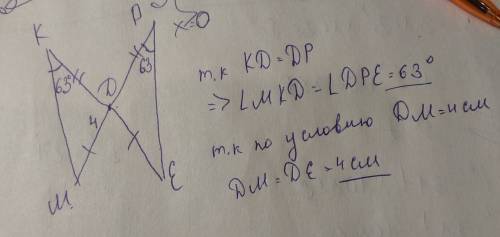 x=0
K
P
63°
63
D
4
M
E
т.к KD = DP
=> ∠MKD = ∠DPE = 63°
т.к по условию DM = 4 см
DM = DE = 4 см